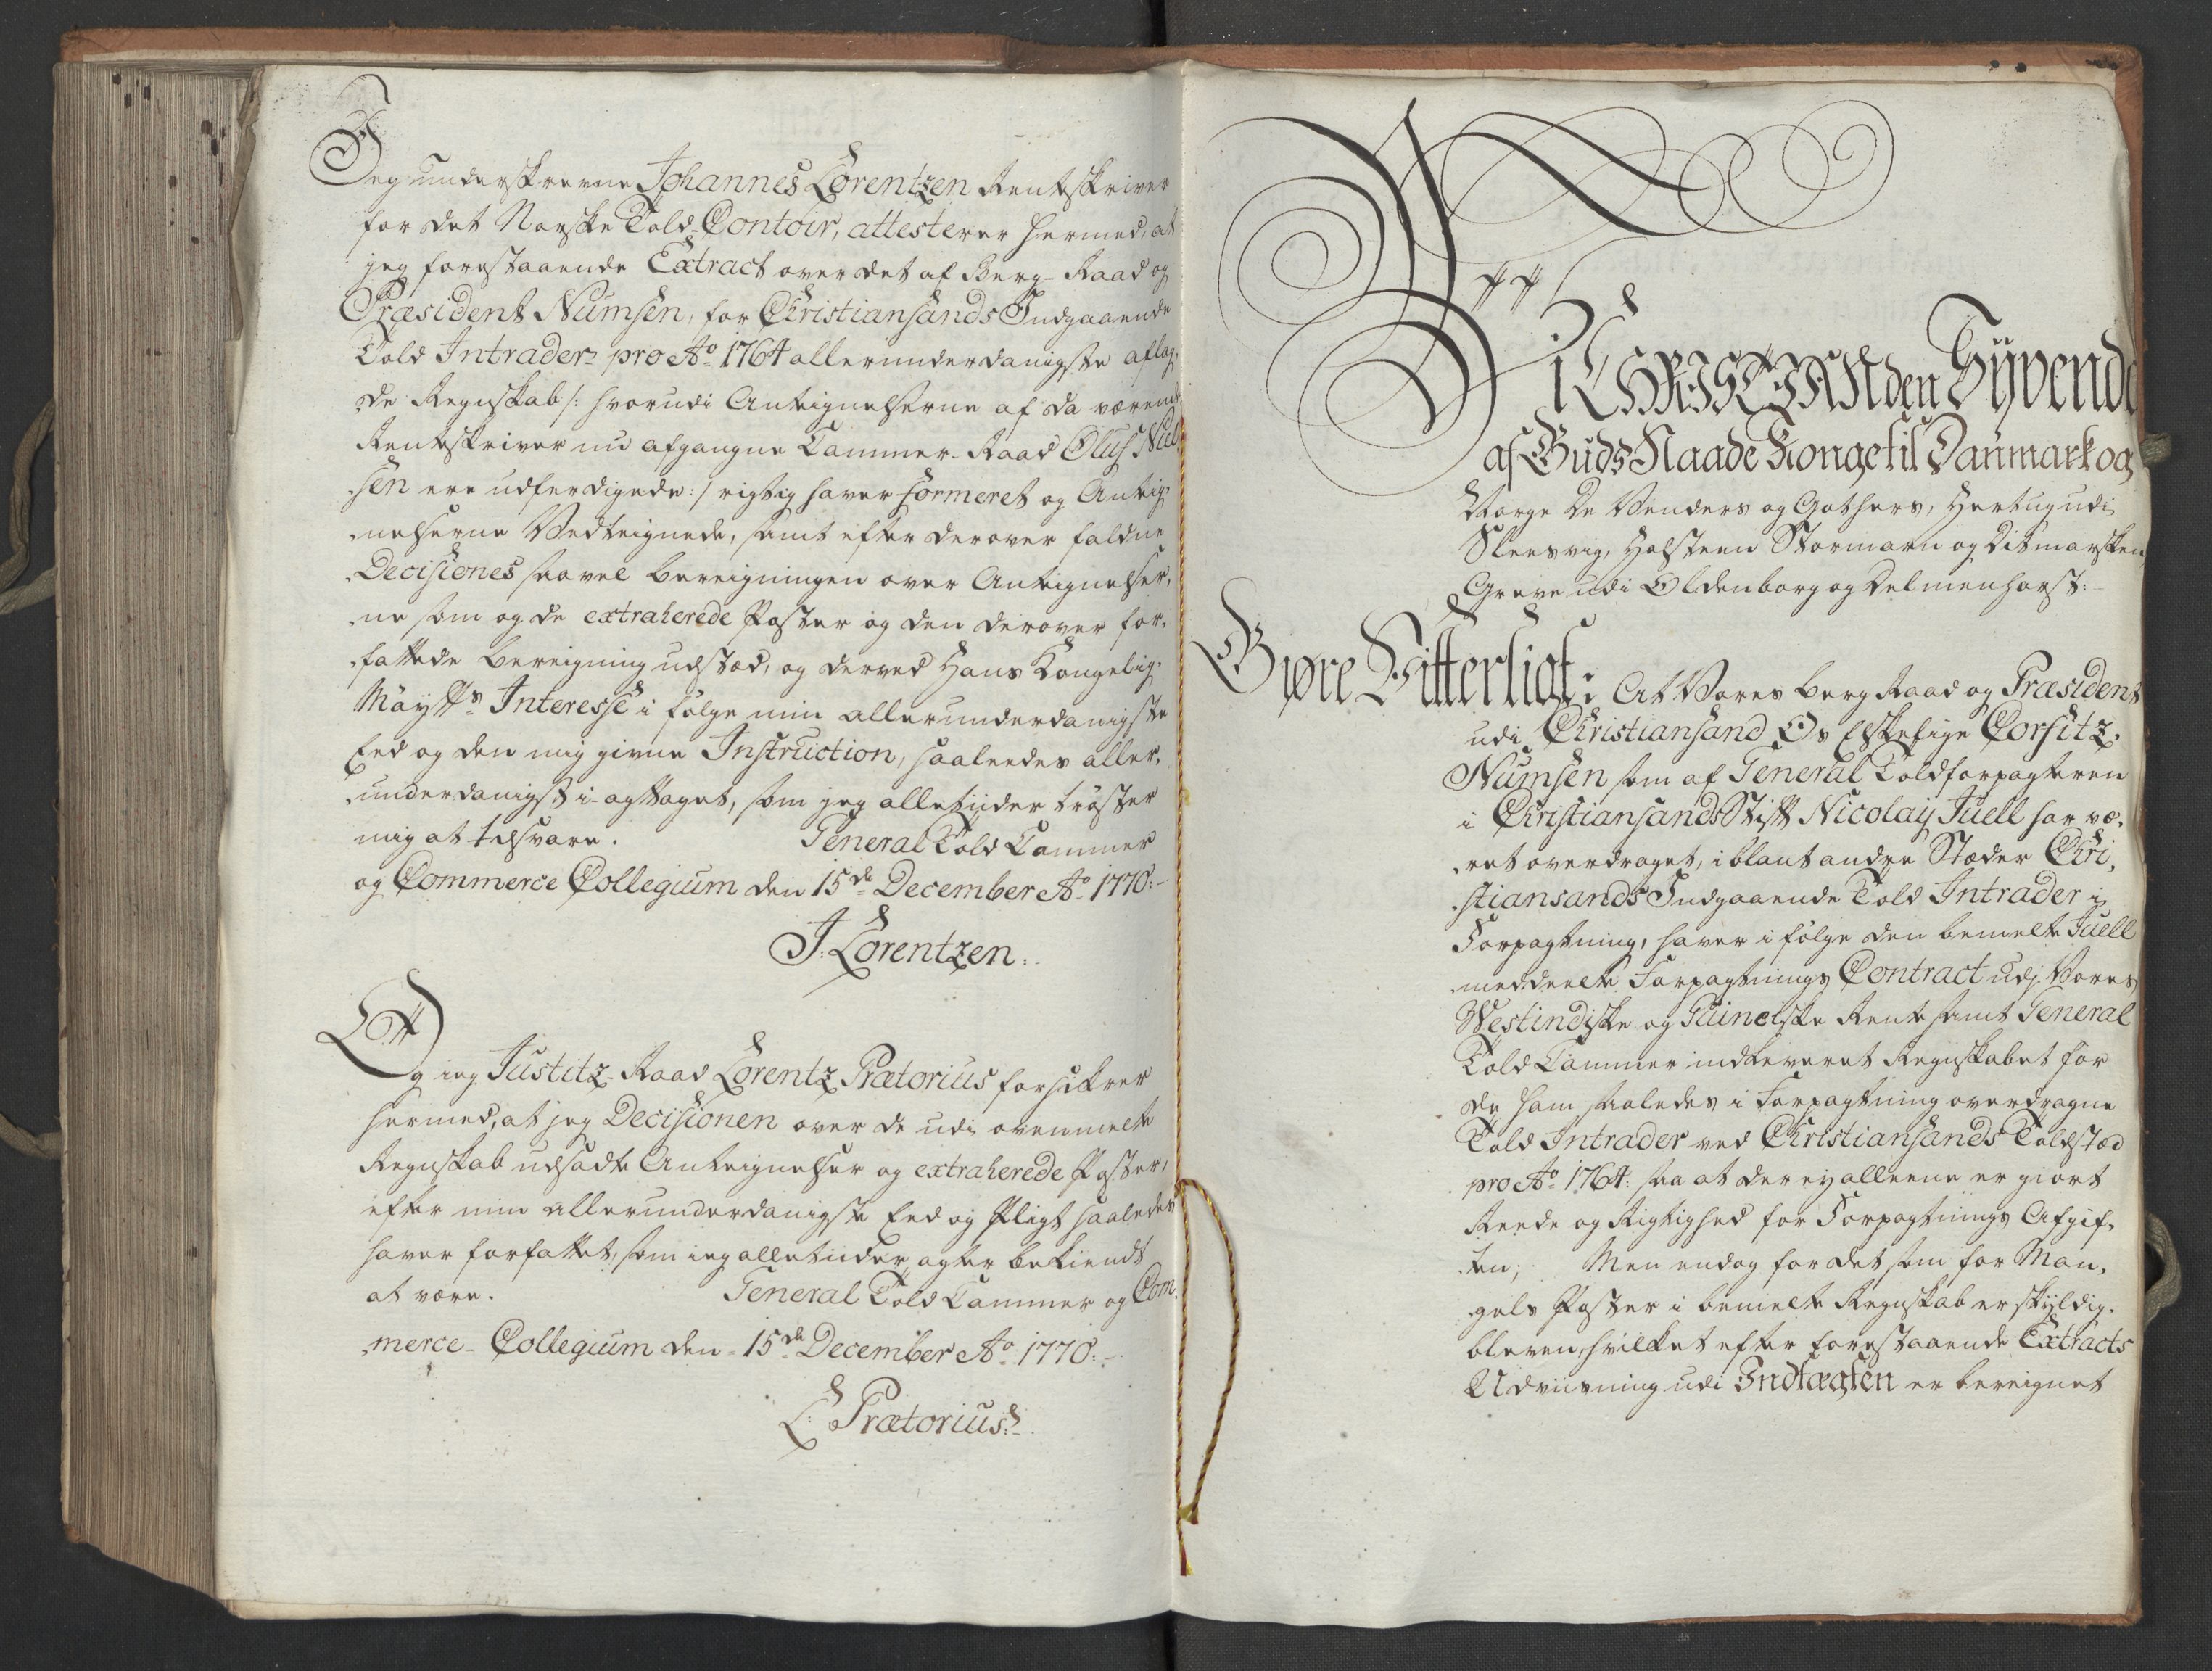 Jeg underskrevne Johannes Lorentzen Renteskriver
for det Norske Told-Contoir, attesterer hermed, at
jeg forestaaende Extract over det af Berg-Raad og
Præsident Numsen, for Christiansands Indgaaende
Told Intrader pro Ao 1764 allerunderdanigste aflag,
de Regnskab /: hvorudi Antegnelserne af da værende
Renteskriver nu afgangne Cammer-Raad Oluf Niel
,sen ere udferdigede :/ rigtig haver formeret og Anteg,
,nelserne Vedtegnede, samt efter derover faldne
Decisiones saavel beregningen over Antegnelser,
,ne som og de extraherede Poster og den derover for,
,fattede beregning udstæd, og derved Hans Kongelig.
Mayts Interesse i følge min allerunderdanigste
Eed og den mig givne Instruction, saaledes aller,
,underdanigst i-agttaget, som jeg alletiider trøster
mig at tilsvare. General Told Cammer
og Commerce Collegium den 15de December Ao 1770:-
J: Lorentzen:
Og jeg Justitz-Raad Lorentz Prætorius forsikrer
hermed, at jeg Decisionen over de udi ovenmelte
Regnskab udsadte Antegnelser og extraherede Poster,
efter min allerunderdanigste Eed og Pligt saaledes
haver forfattet, som jeg alletiider agter bekiendt
at være. General Told Cammer og Com,
,merce-Collegium den 15de December Ao 1770:-
L: Prætorius:
Vi CHRISTIAN den Syvende
af Guds Naade Konge til Danmark og
Norge De Venders og Gothers, Hertug udi
Sleesvig, Holsteen Stormarn og Ditmarsken
Greve udi Oldenborg og Delmenhorst:-
Giøre Vitterligt: At Vores Berg Raad og Præsident
udi Christiansand Os Elskelige Corfitz
Numsen som af General Toldforpagteren
i Christiansands Stift Nicolay Juell har væ,
,ret overdraget, iblant andre Stæder Chri,
,stiansands Indgaaende Told Intrader i
Forpagtning, haver i følge den bemelte Juell
meddeelte Forpagtnings Contract udj Vores
Westindiske og Guineiske Rente samt General
Told Cammer indleveret Regnskabet for
de ham saaledes i Forpagtning overdragne
Told Intrader ved Christiansands Toldstæd
pro Ao 1764: saa at der ej alleene er giort
Reede og Rigtighed for Forpagtnings Afgif,
,ten; Men endog for det som for Man,
,gels Poster i bemelte Regnskab er skyldig
bleven, hvilket efter forestaaende Extracts
Udviisning udi Indtægten er beregnet